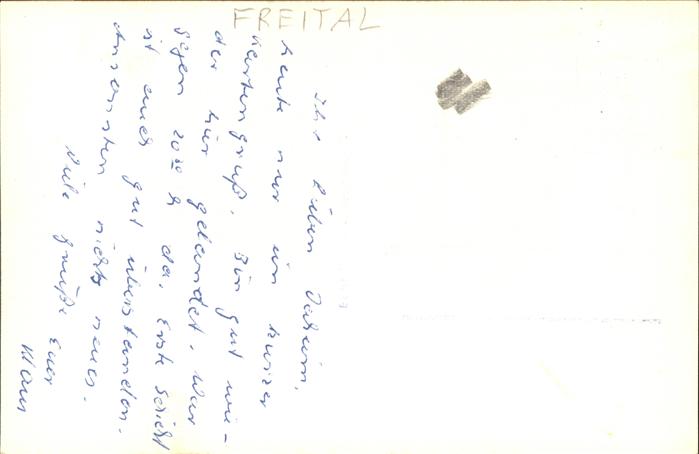 FREITAL
Ihr Lieben Daheim,
heute nur ein kurzer
Kartengruß. Bin gut wie-
der hier gelandet. War
gegen 20⁰⁰ h da. Erste Schicht
ist auch gut überstanden.
Ansonsten nichts neues.
Viele Grüße Euer
Klaus